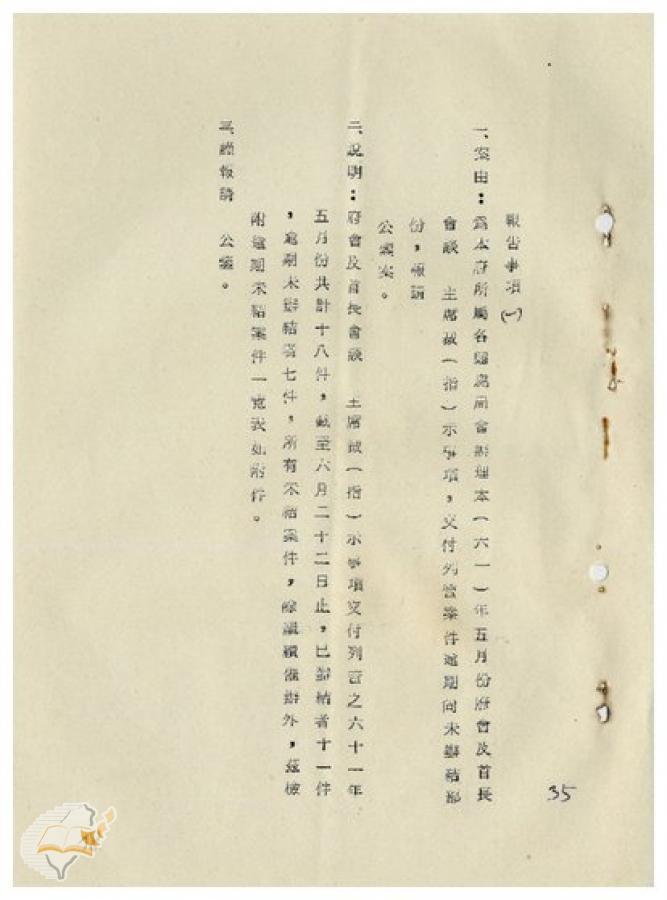 報告事項(一)
一、案由：為本府所屬各廳處局會辦理本(六一)年五月份府會及首長
會談　主席裁(指)示事項，交付列管案件逾期尚未辦結部
份，報請
公鑒案。
二、說明：府會及首長會談　主席裁(指)示事項交付列管之六十一年
五月份共計十八件，截至六月二十二日止，已辦結者十一件
，逾期未辦結者七件，所有未結案件，除繼續催辦外，茲檢
附逾期未結案件一覽表如附件。
三、謹報請　公鑒。
35